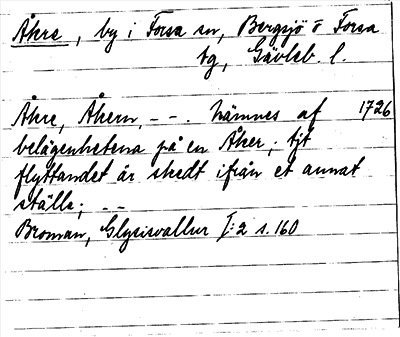 Åkre, by i Forsa sn, Bergsjö o Forsa
tg, Gävleb. l.
Åkre, Åkern, - - . nämnes af 1726
belägenhetena på en Åker; tjt
flyttandet är skedt ifrån et annat
ställe; - -
Broman, Glysisvallur I:2 s. 160